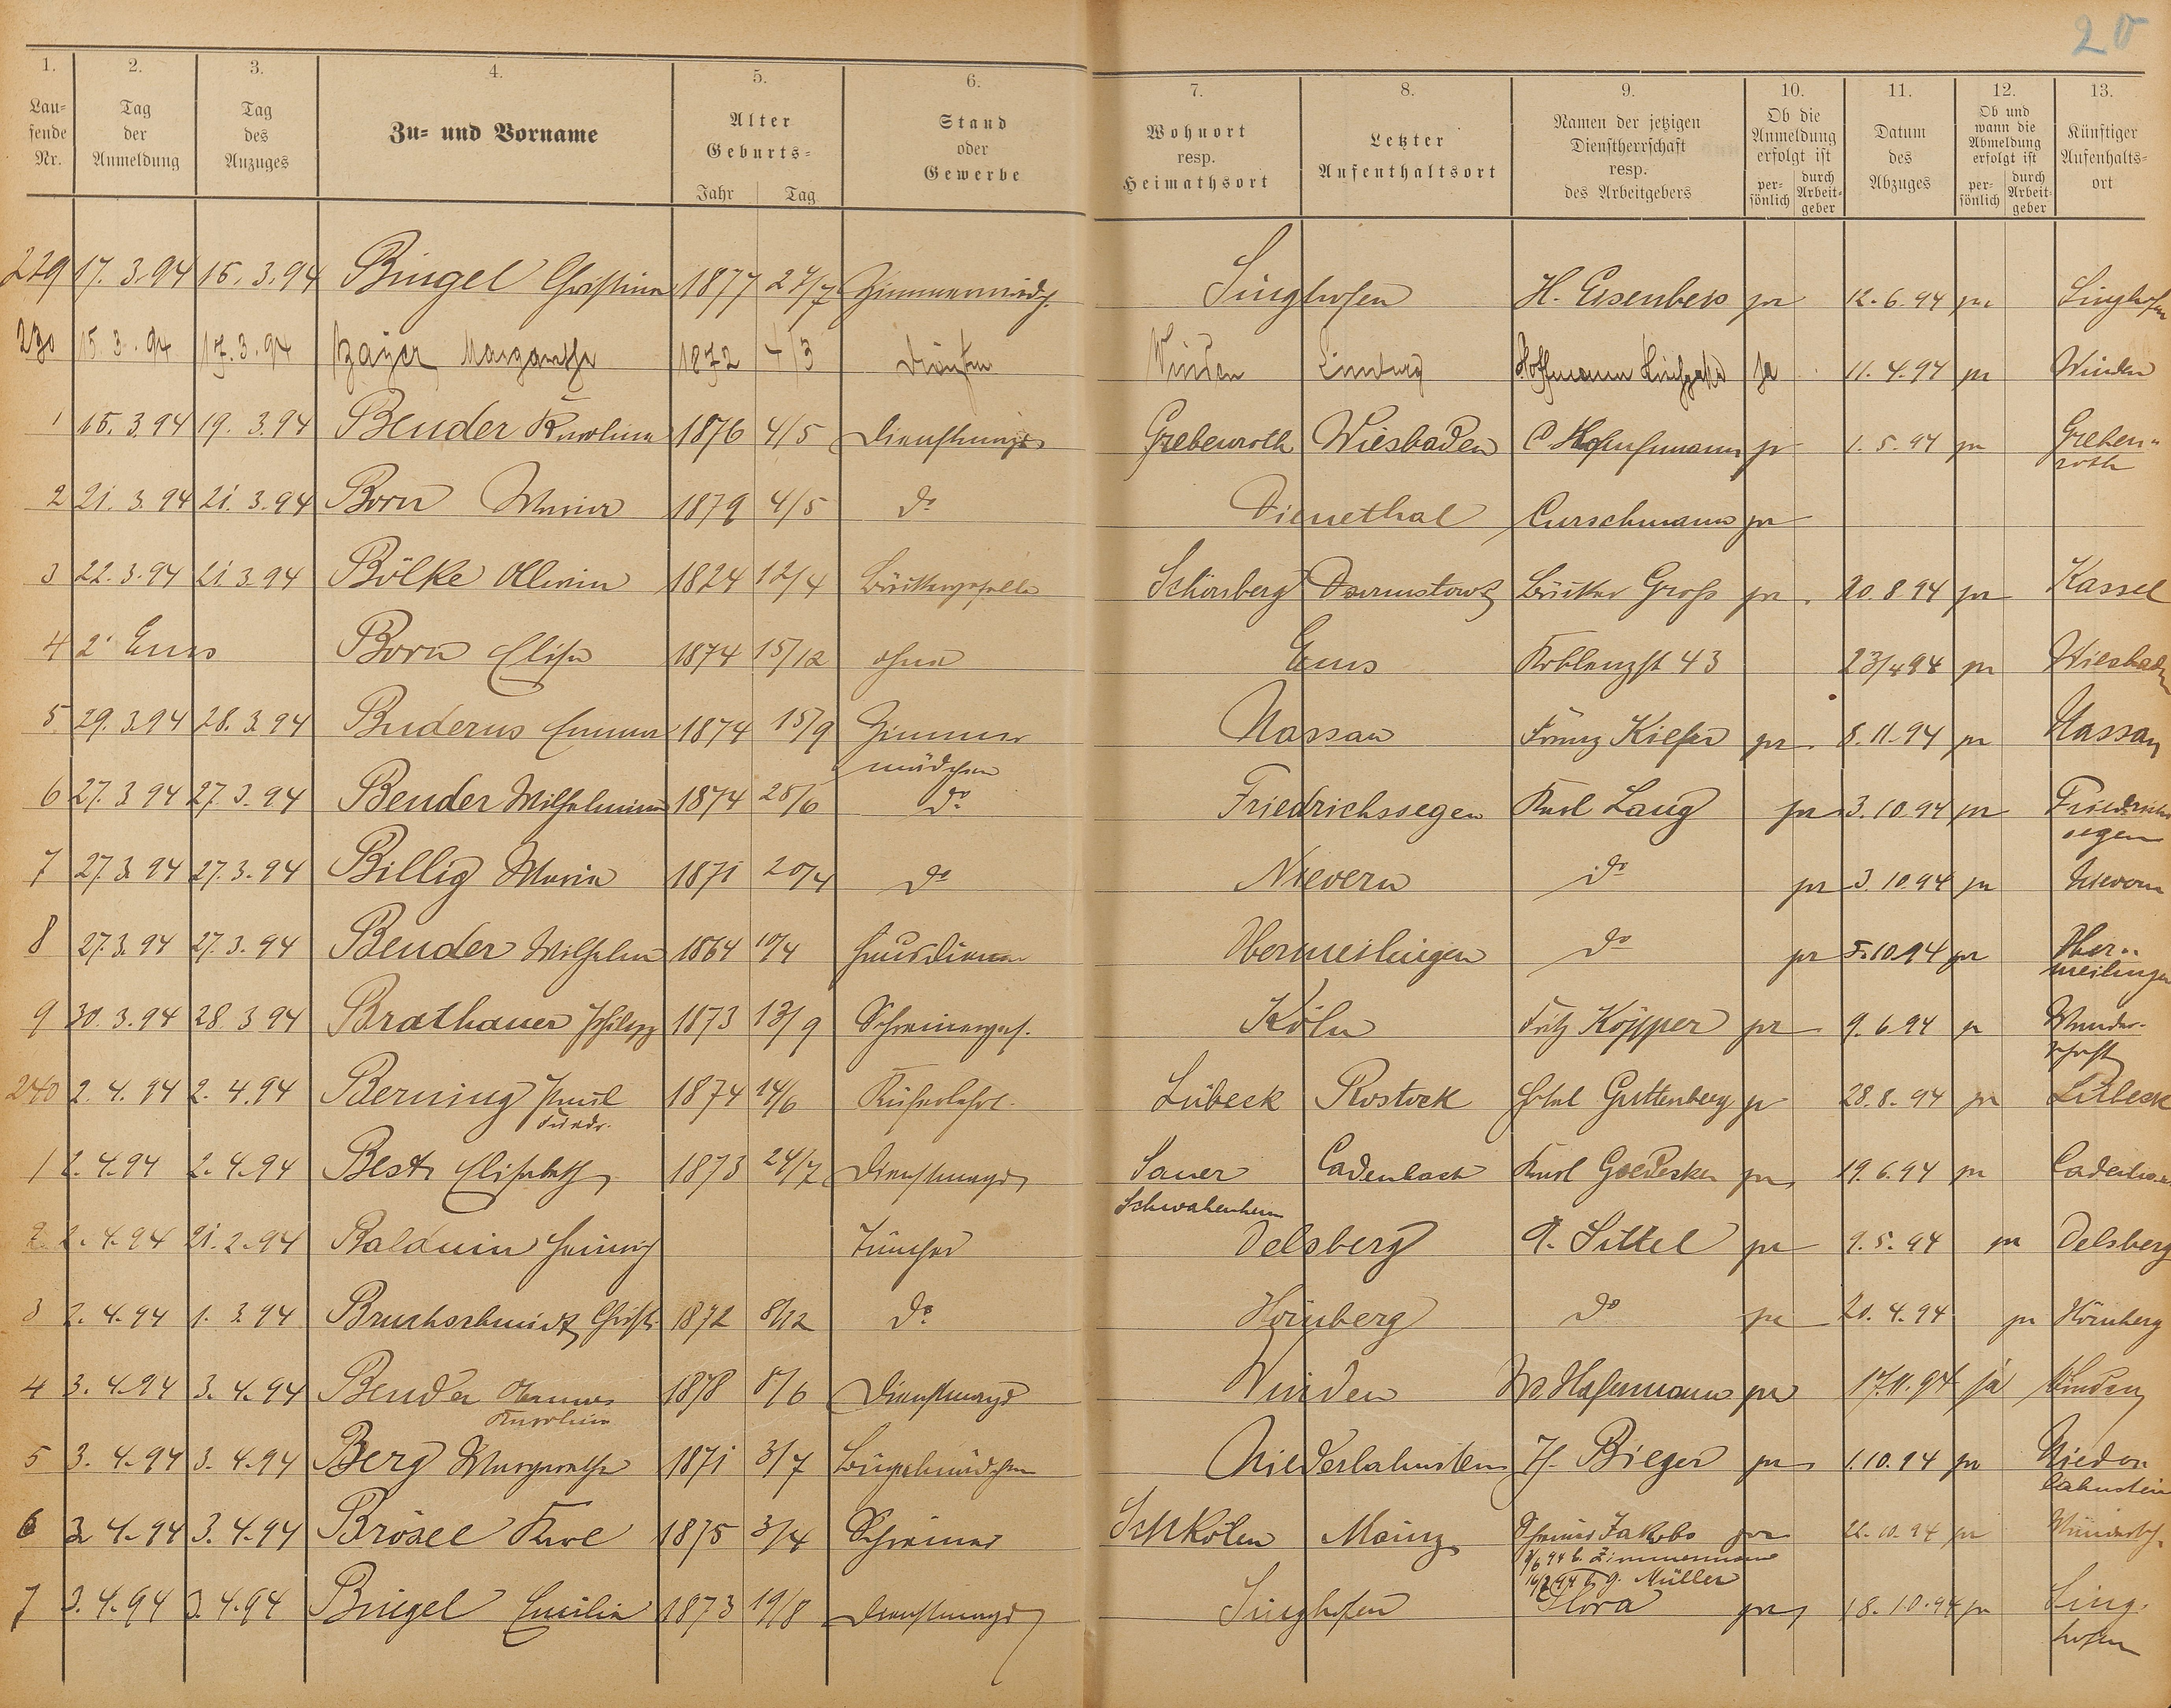 20
1. 2. 3. 4. 5. 6. 7. 8. 9. 10. 11. 12. 13.
Lau-
fende
Nr.
Tag
der
Anmeldung
Tag
des
Anzuges
Zu- und Vorname
Alter
Geburts-
Jahr Tag
Stand
oder
Gewerbe
Wohnort
resp.
Heimathsort
Letzter
Aufenthaltsort
Namen der jetzigen
Dienstherrschaft
resp.
des Arbeitgebers
Ob die
Anmeldung
erfolgt ist
per-
sönlich
durch
Arbeit-
geber
Datum
des
Abzuges
Ob und
wann die
Abmeldung
erfolgt ist
per-
sönlich
durch
Arbeit-
geber
Künftiger
Aufenhalts-
ort
229 17. 3. 94 16. 3. 94 Bingel Christine 1877 27/7 Zimmermädch. Singhofen H. Eisenbeis ja 12. 6. 94 ja Singhofen
230 15. 3. 94 17. 3. 94 Bayer Margarethe 1872 4/3 Winden Limburg Hoffmann ja 11. 4. 94 ja Winden
1 15. 3. 94 19. 3. 94 Bender Karoline 1876 4/5 Dienstmagd Grebenroth Wiesbaden C. ja 1. 5. 94 ja Greben-
roth
2 21. 3. 94 21. 3. 94 Born Maria 1879 4/5 do Dienethal Curschmann ja
3 22. 3. 94 21. 3. 94 Bölke Allwin 1824 12/4 Bäckergeselle Schönberg Darmstadt Bäcker Groß ja 20. 8. 94 ja Kassel
4 2. Ems Born Elise 1874 15/12 ohne Ems Koblenzst 43 23/4 94 ja Wiesbaden
5 29. 3. 94 28. 3. 94 Buderus Emma 1874 15/9 Zimmer
mädchen Nassau Franz Kiefer ja 8. 11. 94 ja Nassau
6 27. 3 94 27. 3. 94 Bender Wilhelmine 1874 28/6 do Friedrichssegen Karl Lang ja 3. 10. 94 ja Friedrichs
segen
7 27. 3. 94 27. 3. 94 Billig Maria 1871 20/4 do Nievern do ja 3. 10. 94 ja Nievern
8 27. 3. 94 27. 3. 94 Bender Wilhelm 1864 10/4 Hausdiener Obermeilingen do ja 5. 10. 94 ja Ober-
meilingen
9 30. 3. 94 28. 3. 94 Brathauer Philipp 1873 13/9 Schreinerges. Köln Fritz Köpper ja 9. 6. 94 ja Wander-
schaft
240 2. 4. 94 2. 4. 94 Berning Paul
Friedr. 1874 14/6 Lübeck Rostock Hotel Guttenberg ja 28. 8. 94 ja Lübeck
1 2. 4. 94 2. 4. 94 Best Elisabeth 1873 24/7 Dienstmagd Sauer
Schwabenheim Cadenbach Karl Goedecke ja 19. 6. 94 ja Cadenbach
2 2. 4. 94 21. 2. 94 Balduin Heinrich Tüncher Delsberg A. Sittel ja 9. 5. 94 ja Delsberg
3 2. 4. 94 1. 3. 94 Bruchschmidt Christ. 1872 8/12 do Hömberg do ja 20. 4. 94 ja Hömberg
4 3. 4. 94 3. 4. 94 Bender
Karoline 1878 8/6 Dienstmagd Winden W. Hofmann ja 17. 11. 94 ja Winden
5 3. 4. 94 3. 4. 94 Berg Margarethe 1871 3/7 Bügelmädchen Niederlahnstein H. Bieger ja 1. 10. 94 ja Nieder
lahnstein
6 3. 4. 94 3. 4. 94 Brösel Karl 1875 3/4 Schreiner Schkölen Mainz Schreiner Jakobs ja 22. 10. 94 ja
3/6 94 b. Zimmermann
16/7 94 b. G. Müller
7 3. 4. 94 3. 4. 94 Bingel Emilie 1873 19/8 Dienstmagd Singhofen Flora ja 18. 10. 94 ja Sing-
hofen